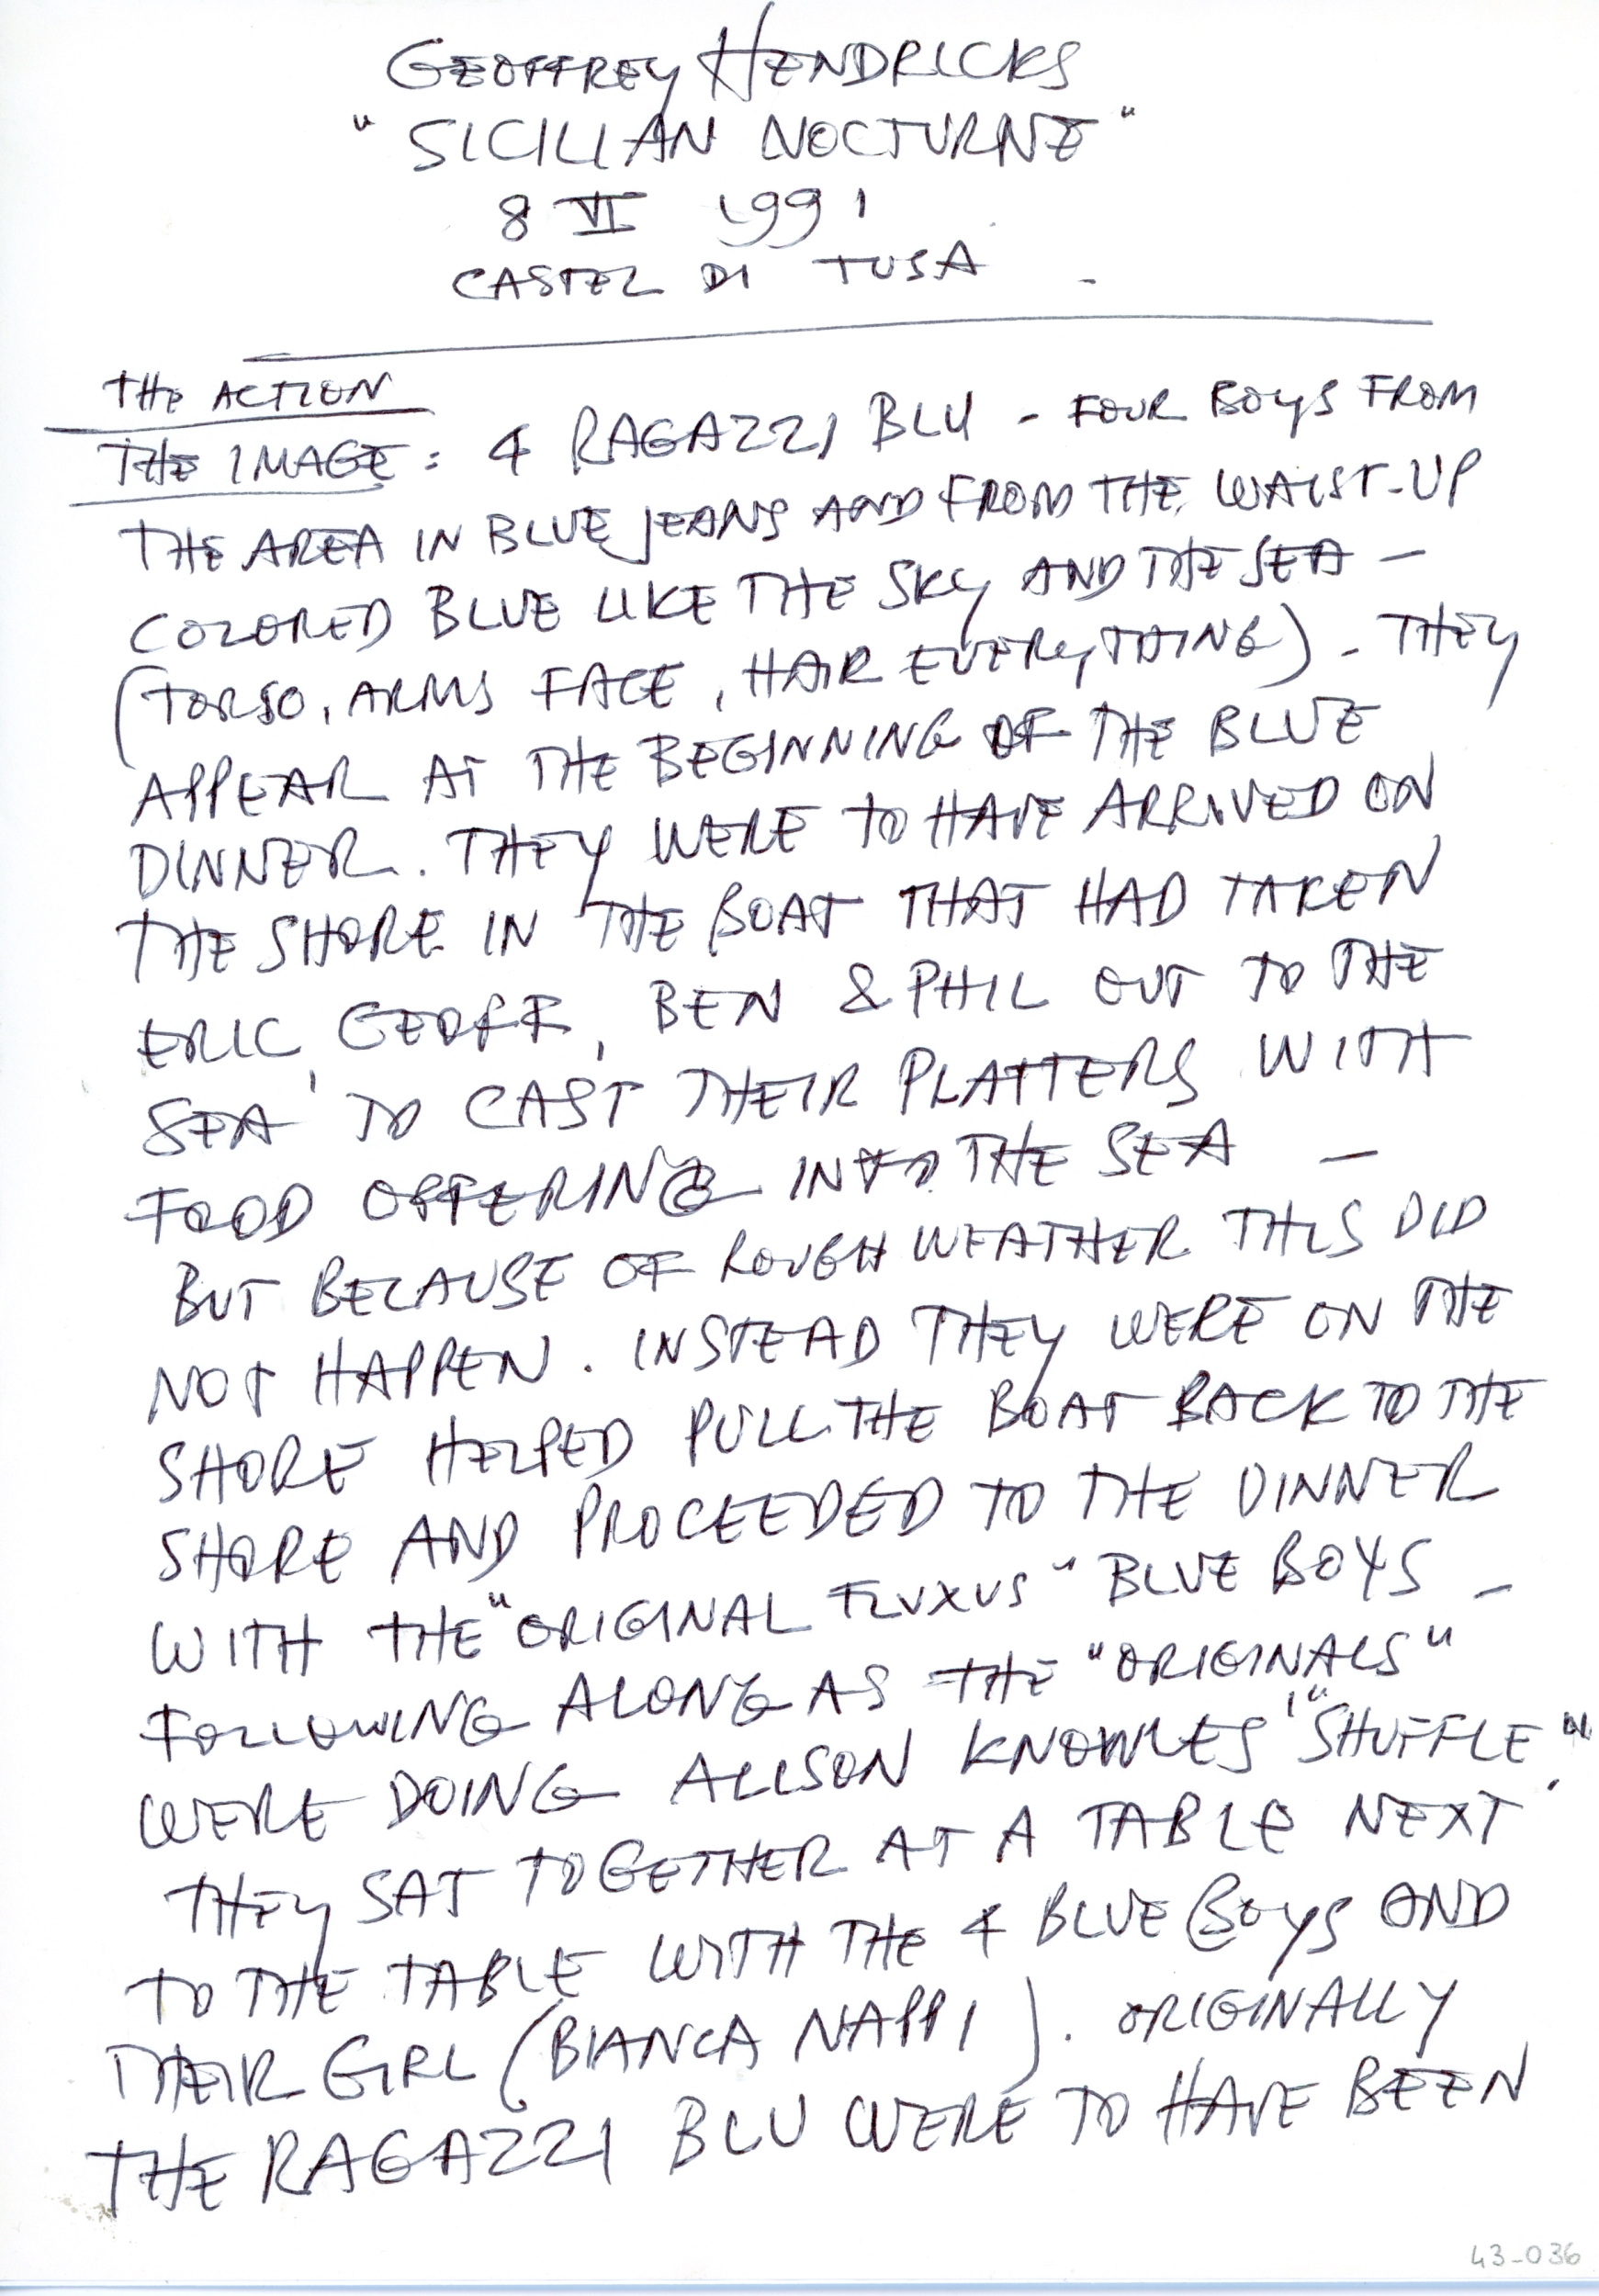 GEOFFREY HENDRICKS
"SICILIAN NOCTURNE"
8 VI 1991
CASTEL DI TUSA -
THE ACTION
THE IMAGE: 4 RAGAZZI BLU - FOUR BOYS FROM
THE AREA IN BLUE JEANS AND FROM THE WAIST-UP
COLORED BLUE LIKE THE SKY AND THE SEA -
(TORSO, ARMS FACE, HAIR EVERYTHING) - THEY
APPEAR AT THE BEGINNING OF THE BLUE
DINNER. THEY WERE TO HAVE ARRIVED ON
THE SHORE IN THE BOAT THAT HAD TAKEN
ERIC, GEOFF, BEN & PHIL OUT TO THE
SEA TO CAST THEIR PLATTERS WITH
FOOD OFFERING INTO THE SEA -
BUT BECAUSE OF ROUGH WEATHER THIS DID
NOT HAPPEN. INSTEAD THEY WERE ON THE
SHORE HELPED PULL THE BOAT BACK TO THE
SHORE AND PROCEEDED TO THE DINNER
WITH THE "ORIGINAL FLUXUS" BLUE BOYS -
FOLLOWING ALONG AS THE "ORIGINALS"
WERE DOING ALISON KNOWLES' "SHUFFLE".
THEY SAT TOGETHER AT A TABLE NEXT
TO THE TABLE WITH THE 4 BLUE BOYS AND
THEIR GIRL (BIANCA NAPPI). ORIGINALLY
THE RAGAZZI BLU WERE TO HAVE BEEN
43-036